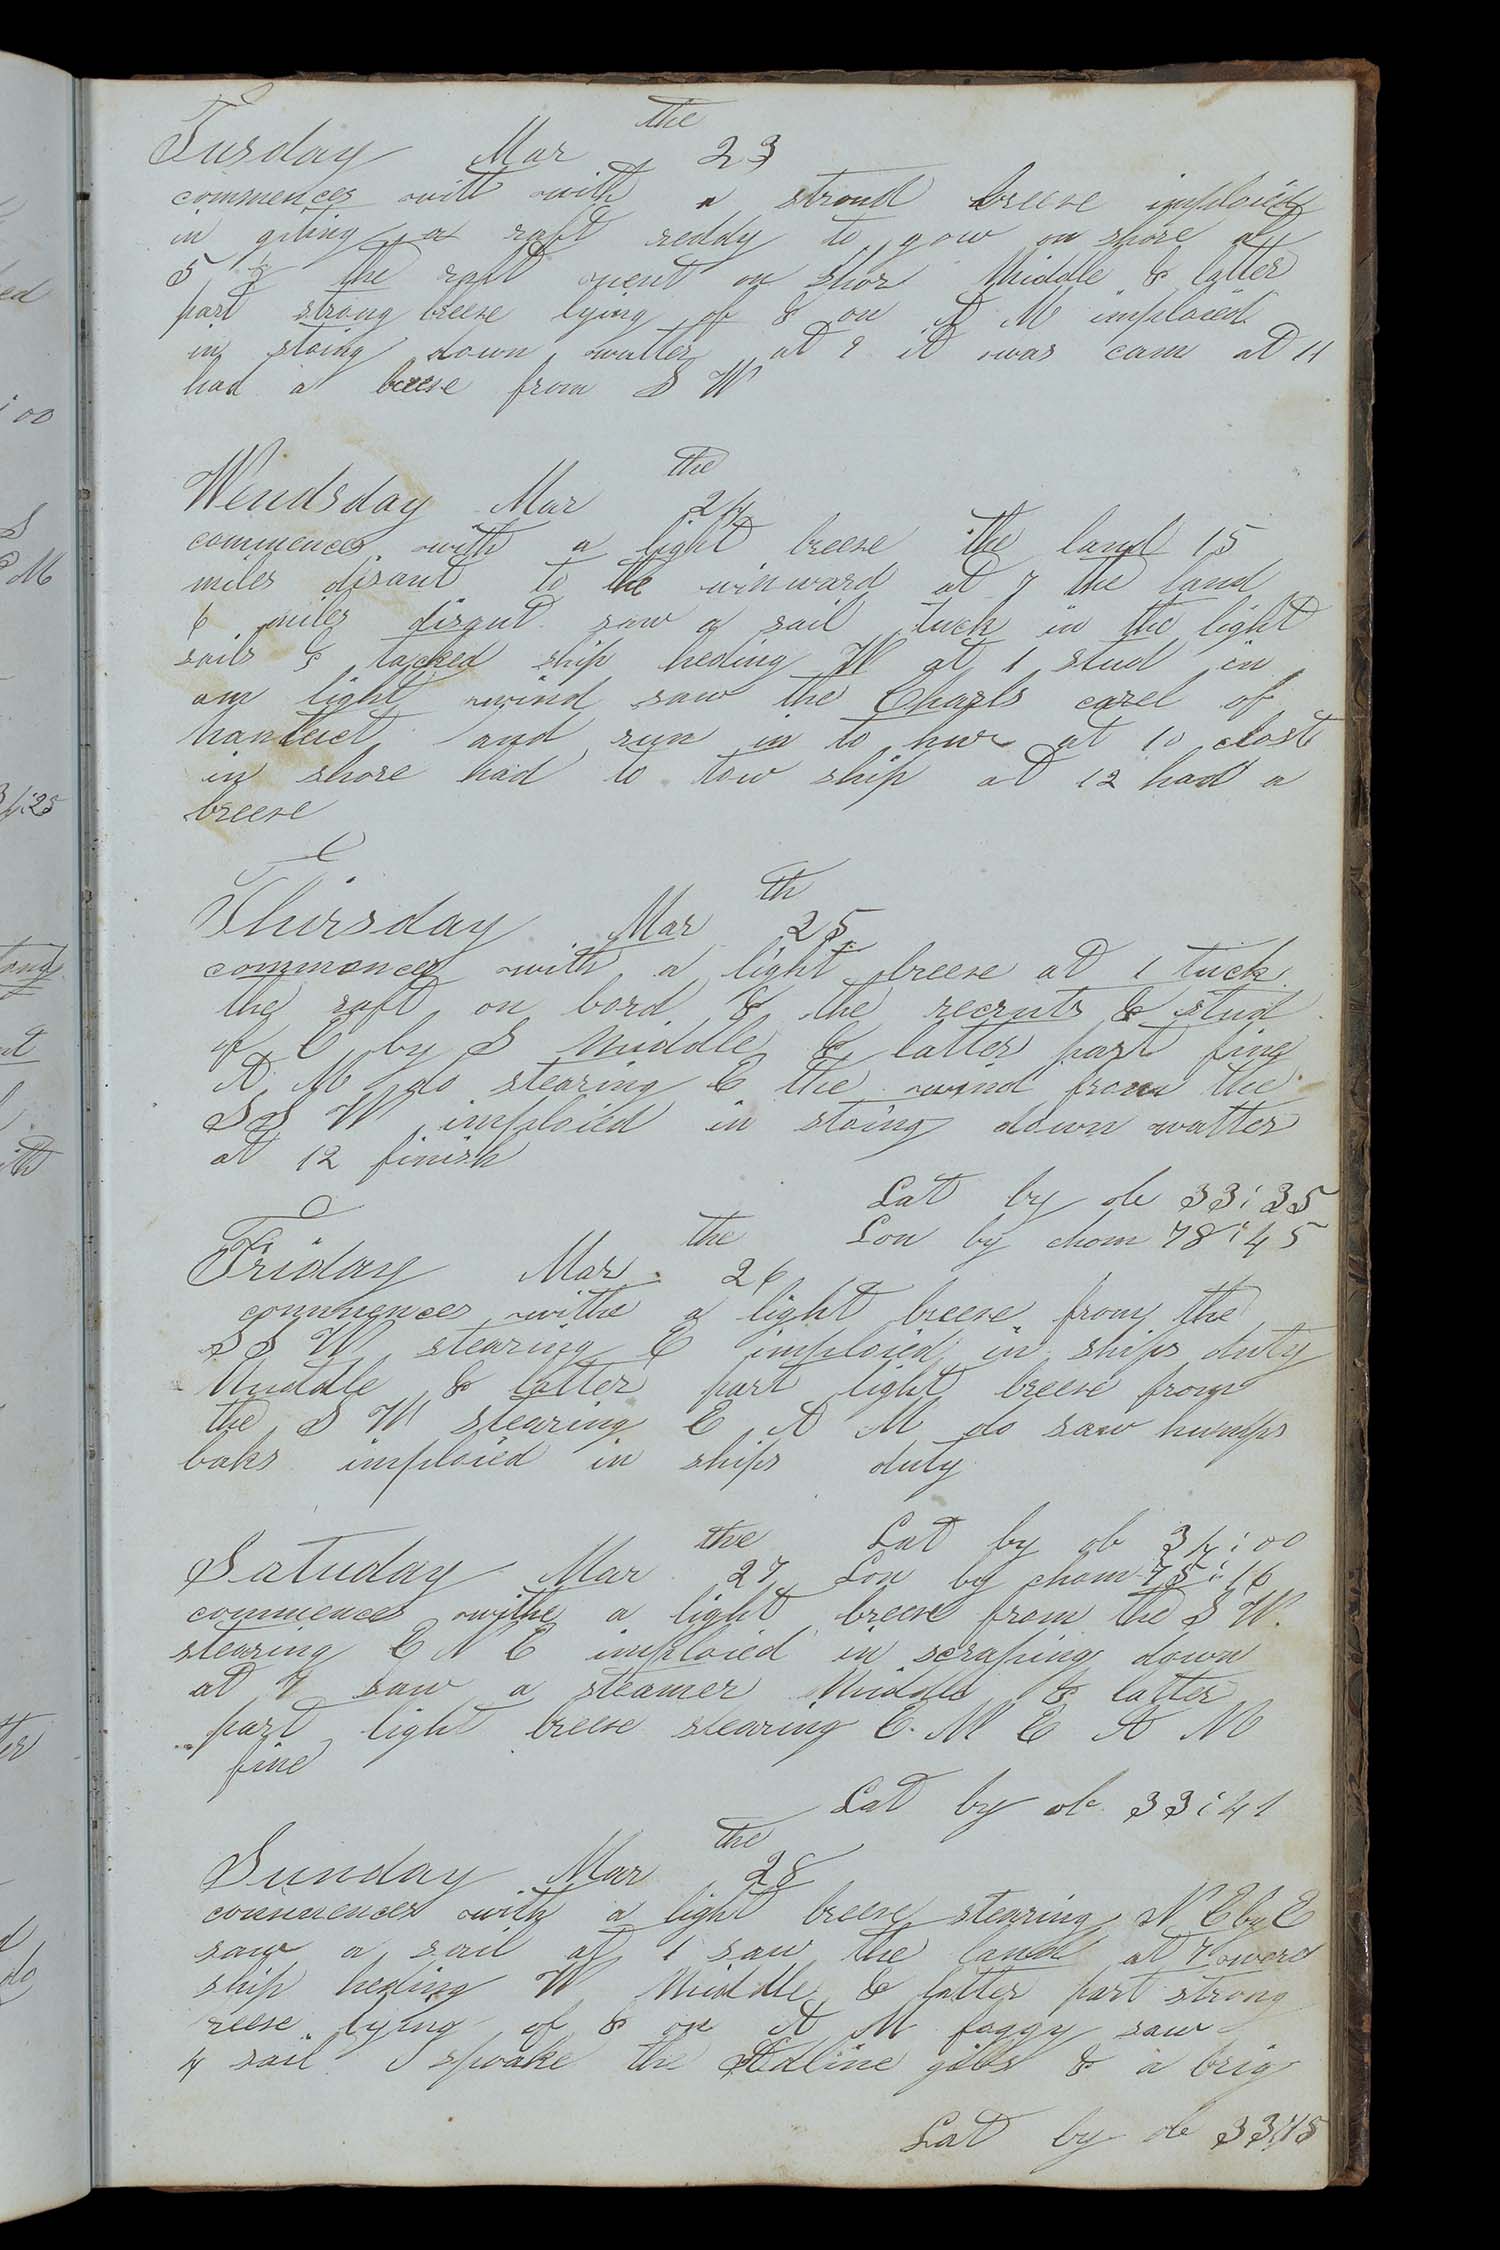 Tusday Mar the 23
commences witt with a strond breese imploied
in giting a raft reddy to gow on shore at
5 ½ the raft went on shor Middle & latter
part strong breese lying of & on A M imploied
in stoing down watter at 9 it was cam at 11
had a breese from S W
Wendsday Mar the 24
commences with a light breese the land 15
miles disant to the winward at 7 the land
6 miles disant saw a sail tuck in the light
sails & tacked ship heding W at 1 stud in
am light wind saw the Charls carel of
nantuct and run in to hur at 10 clost
in shore had to tow ship at 12 had a
breese
Thirsday Mar th 25
commences with a light breese at 1 tuck
the raft on bord & the recruts & stud
of E by S Middle & latter part fine
A M do stearing E the wind from the
S S W imploied in stoing down watter
at 12 finish
Lat by ob 33:35
Lon by chom 78:45
Friday Mar the 26
commences withe a light breese from the
S S W stearing E imploied in ships duty
Middle & latter part light breese from
the S W stearing E A M do saw humps
baks imploied in ships duty
Lat by ob 34:00
Satuday Mar the 27 Lon by chom 75:16
commences withe a light breese from the S W
stearing E N E imploied in scraping down
at 7 saw a steamer Middle & latter
part light breese stearing E N E A M
fine
Lat by ob 33:41
Sunday Mar the 28
commences with a light breese stearing N E by E
saw a sail at 1 saw the land at 7 word
ship heding W Middle & latter part strong
reese lying of & on A M foggy saw
4 sail spoake the Adline gibs & a brig
Lat by ob 33:15